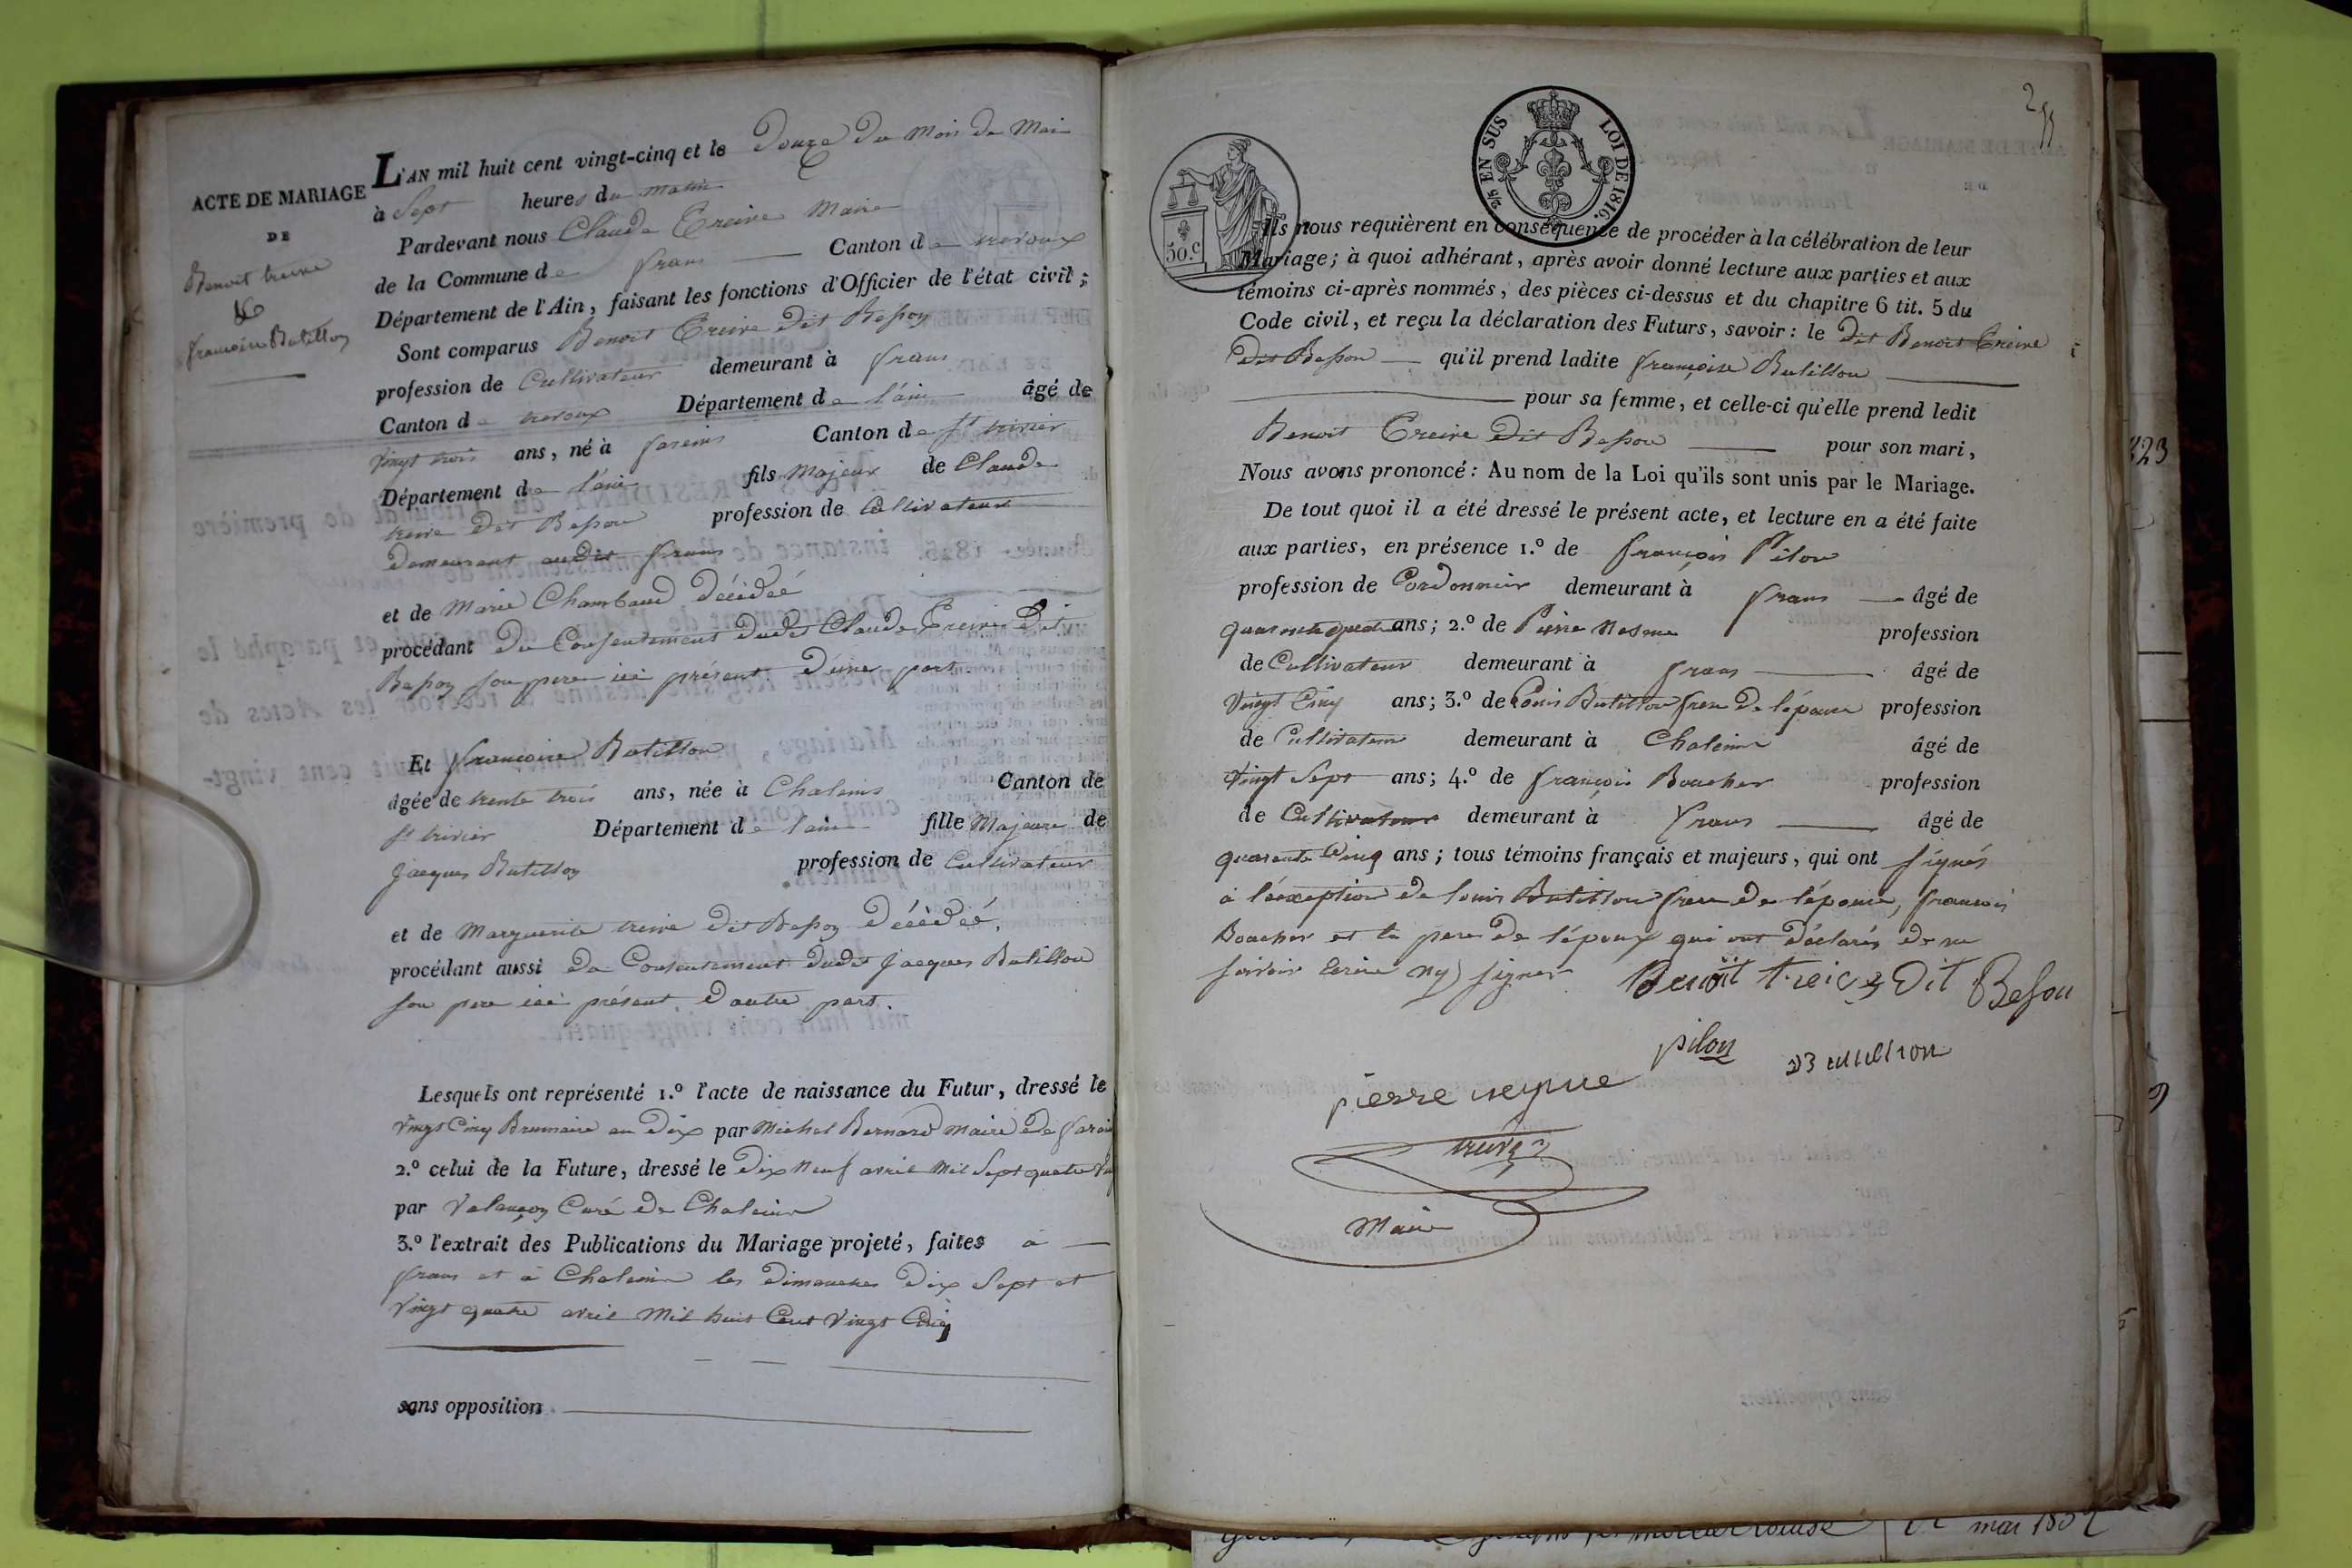 ACTE DE MARIAGE
DE
Benoit treive
&
françoise Batillon
L'AN mil huit cent vingt-cinq et le Douze du Mois de Mai
à Sept heures du matin
Pardevant nous Claude Treive Maire
de la Commune de frans Canton de trevoux
Département de l'Ain, faisant les fonctions d'Officier de l'état civil;
Sont comparus Benoit Treive dit Besson
profession de Cultivateur demeurant à frans
Canton de trevoux Département de l'ain âgé de
vingt trois ans, né à fareins Canton de St trivier
Département de l'ain fils Majeur de Claude
treive dit Besson profession de Cultivateur
demeurant audit frans
et de Marie Chambaud Décédeé
procédant du Consentement dudit Claude Treive Dit
Besson son pere ici présent d'une part.
Et françoise Batillon
âgée de trente trois ans, née à Chaleins Canton de
St trivier Département de l'ain fille Majeure de
Jacques Batillon profession de Cultivateur
et de Marguerite treive dit Besson Décédeé,
procédant aussi du Consentement dudit Jacques Batillon
son pere ici présent d'autre part.
Lesquels ont représenté 1.º l'acte de naissance du Futur, dressé le
vingt Cinq Brumaire an Dix par Michel Bernard Maire de
2.º celui de la Future, dressé le Dix Neuf avril Mil Sept quatre
par Valançon Curé de Chaleins
3.º l'extrait des Publications du Mariage projeté, faites à
frans et à Chaleins les Dimanches Dix Sept et
vingt quatre avril Mil huit Cent Vingt Cinq
sans opposition
50.c
2/5 EN SUS LOI DE 1816.
Ils nous requièrent en conséquence de procéder à la célébration de leur
Mariage; à quoi adhérant, après avoir donné lecture aux parties et aux
témoins ci-après nommés, des pièces ci-dessus et du chapitre 6 tit. 5 du
Code civil, et reçu la déclaration des Futurs, savoir: le dit Benoit Treive
dit Besson qu'il prend ladite françoise Batillon
pour sa femme, et celle-ci qu'elle prend ledit
Benoit Treive Dit Besson pour son mari,
Nous avons prononcé: Au nom de la Loi qu'ils sont unis par le Mariage.
De tout quoi il a été dressé le présent acte, et lecture en a été faite
aux parties, en présence 1.º de françois Pilon
profession de Cordonnier demeurant à frans âgé de
quarante ans; 2.º de Pierre profession
de Cultivateur demeurant à frans âgé de
Vingt Cinq ans; 3.º de Louis Batillon frere de l'épouse profession
de Cultivateur demeurant à Chaleins âgé de
Vingt Sept ans; 4.º de françois Boucher profession
de Cultivateur demeurant à frans âgé de
quarante Cinq ans; tous témoins français et majeurs, qui ont signés
à l'éxception de louis Batillon frere de l'épouse, francois
Boucher et le pere de l'époux qui ont déclarés de ne
savoir écrire ny signer Benoit treive Dit Beson
pilon Batillion
pierre
treive
Maire
823
mai 1852